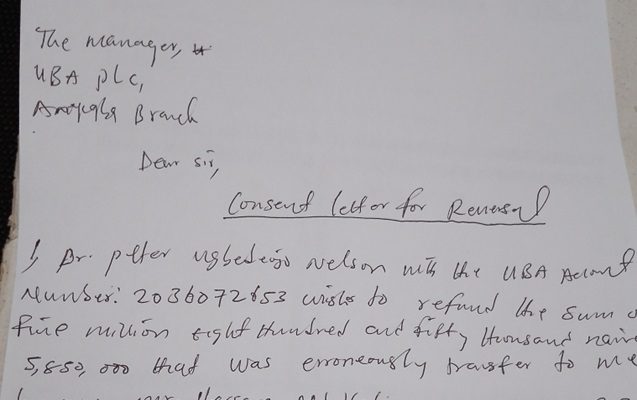 The manager,
UBA plc,
Anyigba Branch
Dear Sir,
Consent letter for Reversal
I, Dr. Peter Ugbedeojo Nelson with the UBA Account
Number: 2036072653 wishes to refund the sum o
five million eight Hundred and fifty thousand naira
5,850,000 that was erroneously transfer to me